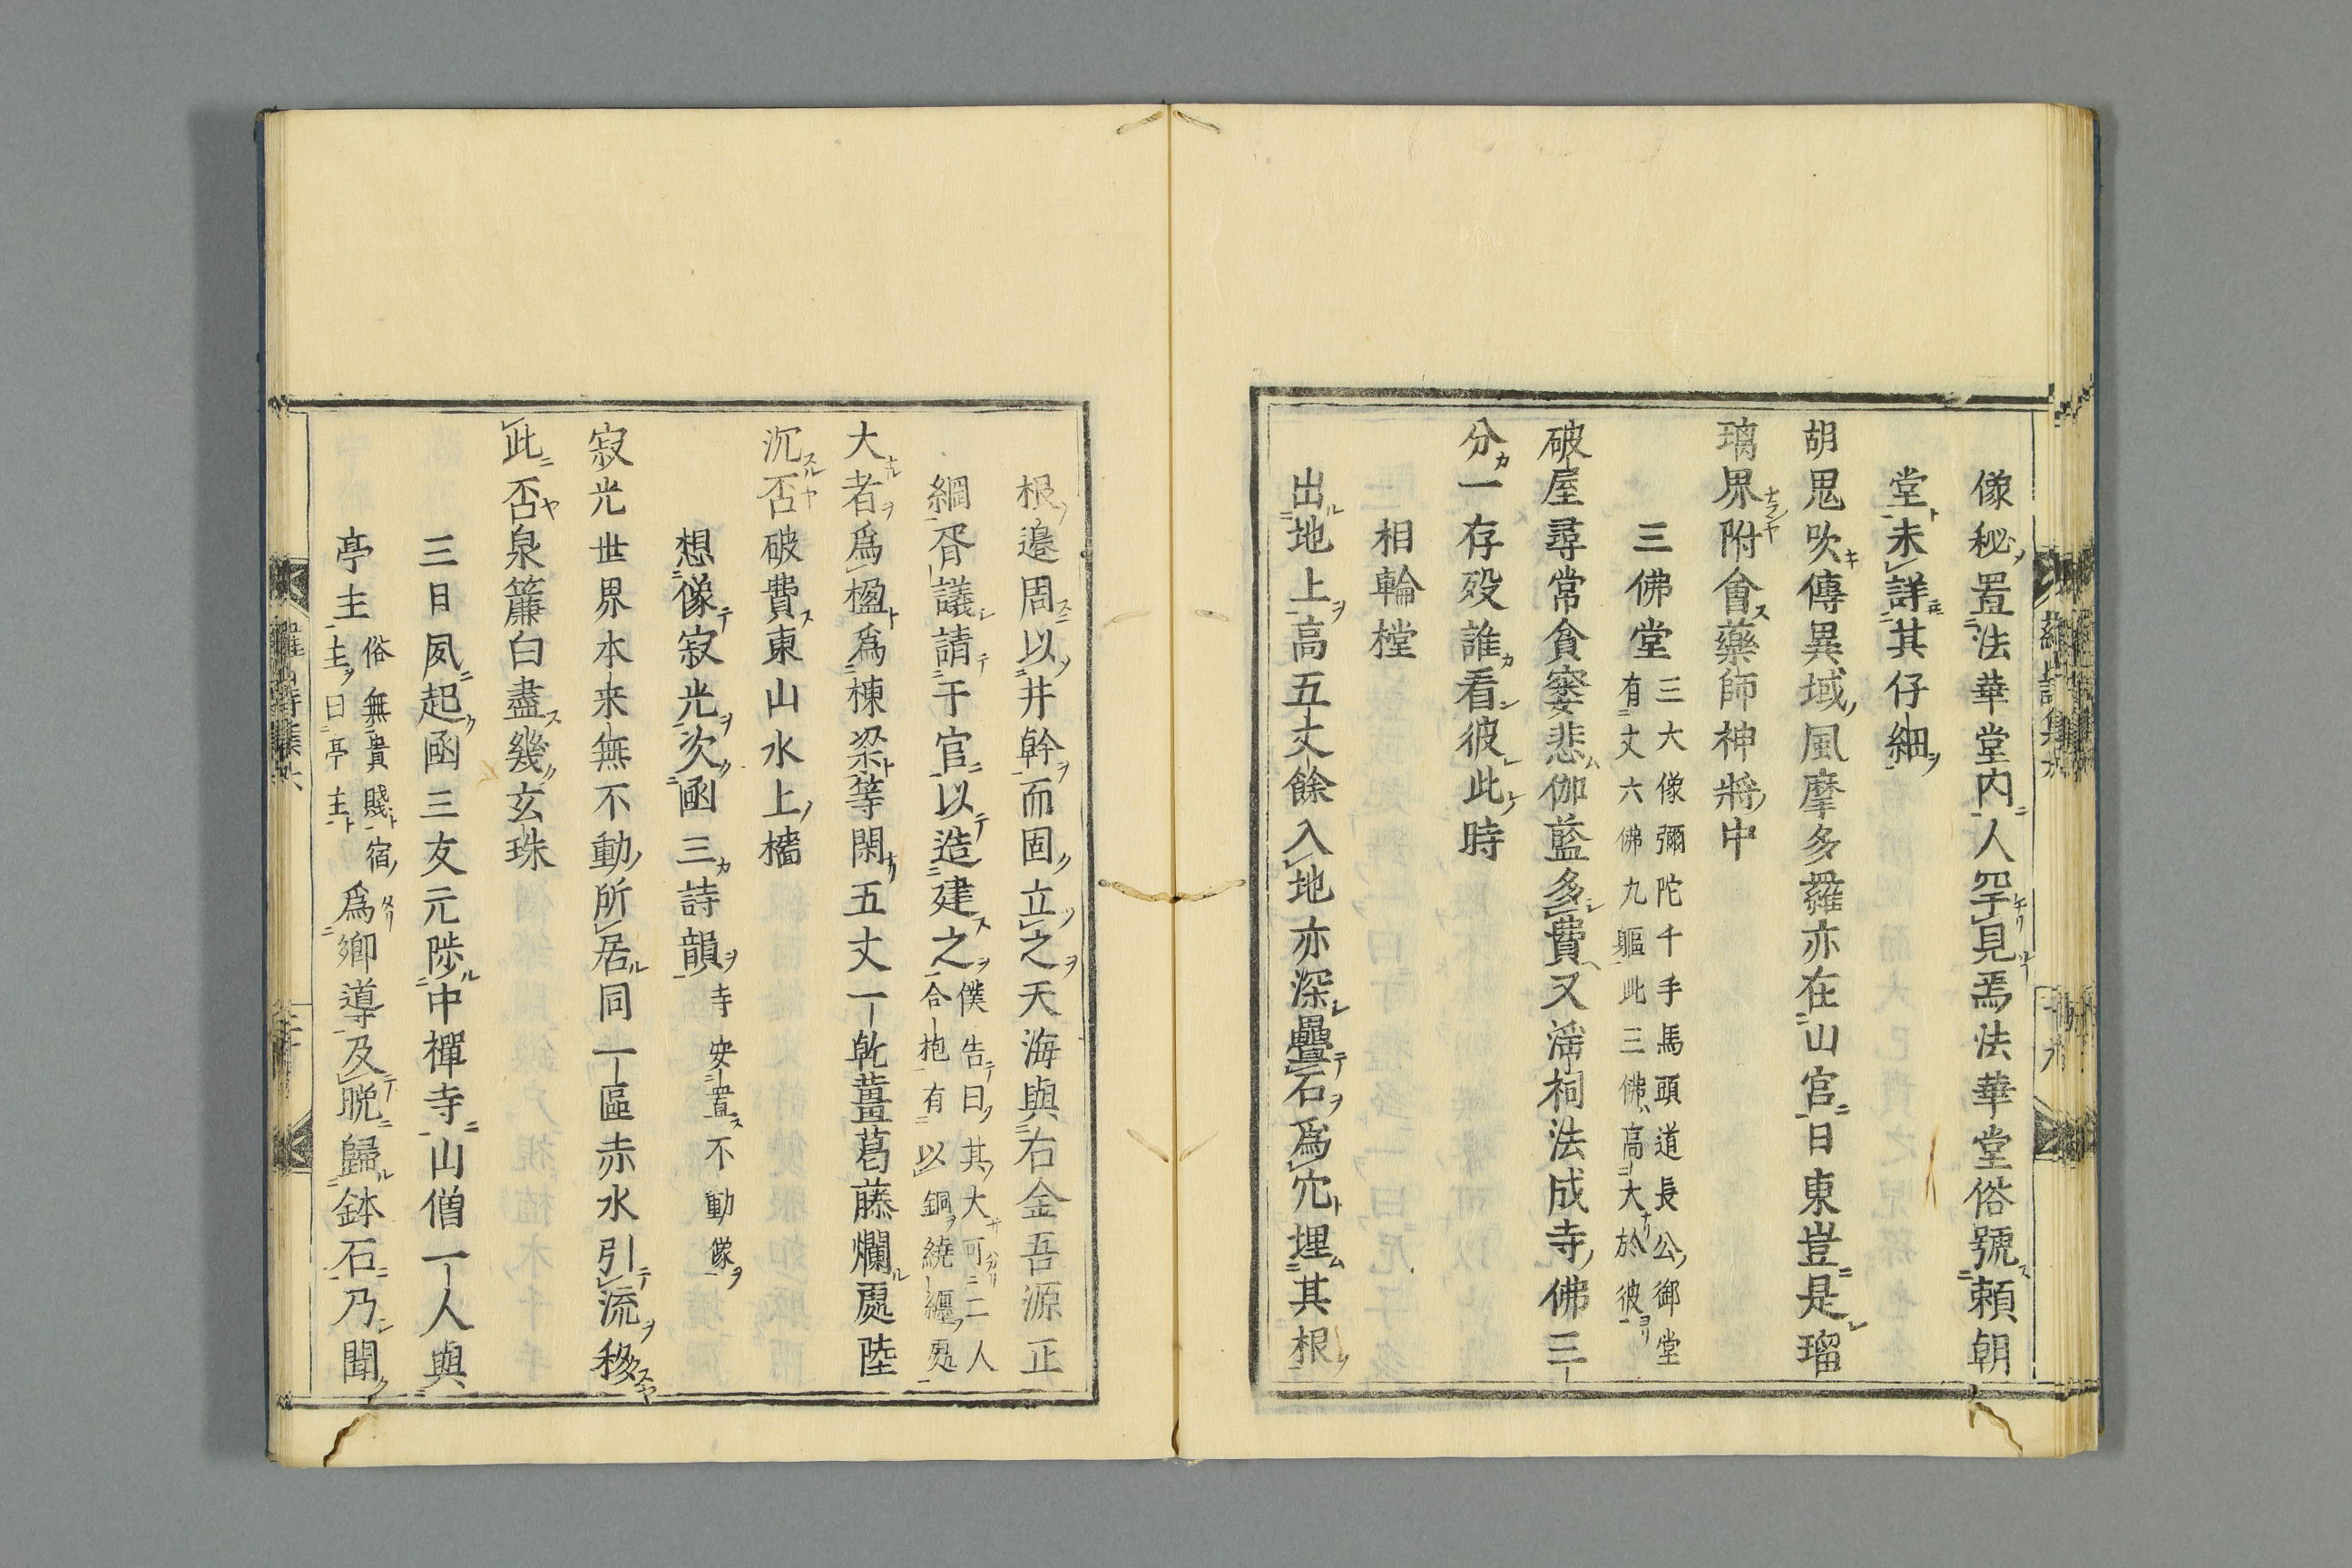 像秘置法華堂内人罕見焉法華堂俗號頼朝
堂未詳其仔細
胡思吹傳異域風摩多羅亦在山宮日東豈是瑠
璃界附會藥師神將中
三佛堂
三大像彌陀千手馬頭道長公御堂
有丈六佛九軀此三佛高大於彼
破屋尋常貪寠悲伽藍多費又淫祠法成寺佛三
分一存歿誰看彼此時
相輪樘
出地上高五丈餘入地亦深疊石爲穴埋其根
根邉周以井幹而固立之天海與右金吾源正
綱胥議請于官以造建之
僕告曰其大可二人
合抱有以銅繞纒處
大者爲楹爲棟梁等閑五丈一乹薑葛藤爛處陸
沉否破費東山水上檣
想像寂光次凾三詩韻
寺安置不動像
寂光世界本来無不動所居同一區赤水引流移
此否泉簾白盡幾玄珠
三日夙起凾三友元陟中禪寺山僧一人與
亭主
俗無貴賤宿
主曰亭主
爲郷導及晩歸鉢石乃聞